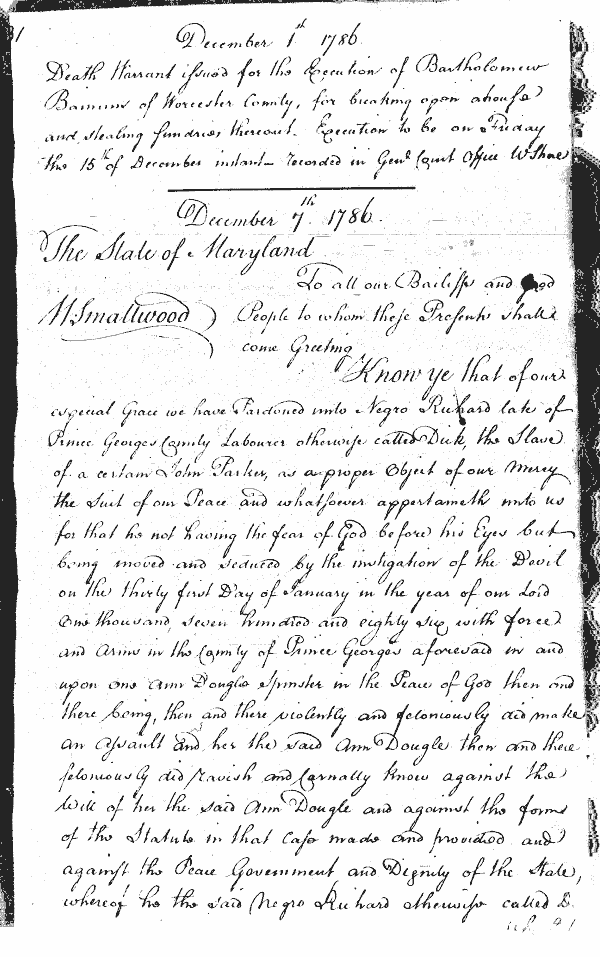 1
December 1st 1786
Death Warrant issued for the Execution of Bartholomew
of Worcester County, for breaking open a house
and stealing sundries thereout. Execution to be on Friday
the 15th of December instant recorded in Genl Court Office W Shore
December 7th 1786.
The State of Maryland
To all our Bailiffs and good
W Smallwood People to whom these Presents shall
come Greeting
Know ye that of our
especial Grace we have Pardoned unto Negro Richard late of
Prince Georges County Labourer otherwise called Dick, the Slave
of a certain John Parker, as a proper Object of our Mercy
the Suit of our Peace and whatsoever appertaineth unto us
for that he not having the fear of God before his Eyes but
being moved and seduced by the instigation of the Devil
on the thirty first Day of January in the year of our Lord
One thousand, seven hundred and eighty six with force
and Arms in the County of Prince Georges aforesaid in and
upon one Ann Dougle Spinster in the Peace of God then and
there being, then and there violently and feloniously did make
an Assault and her the said Ann Dougle then and there
feloniously did ravish and Carnally know against the
Will of her the said Ann Dougle and against the form
of the Statute in that Case made and provided and
against the Peace Government and Dignity of the State,
whereof he the said Negro Richard otherwise called D